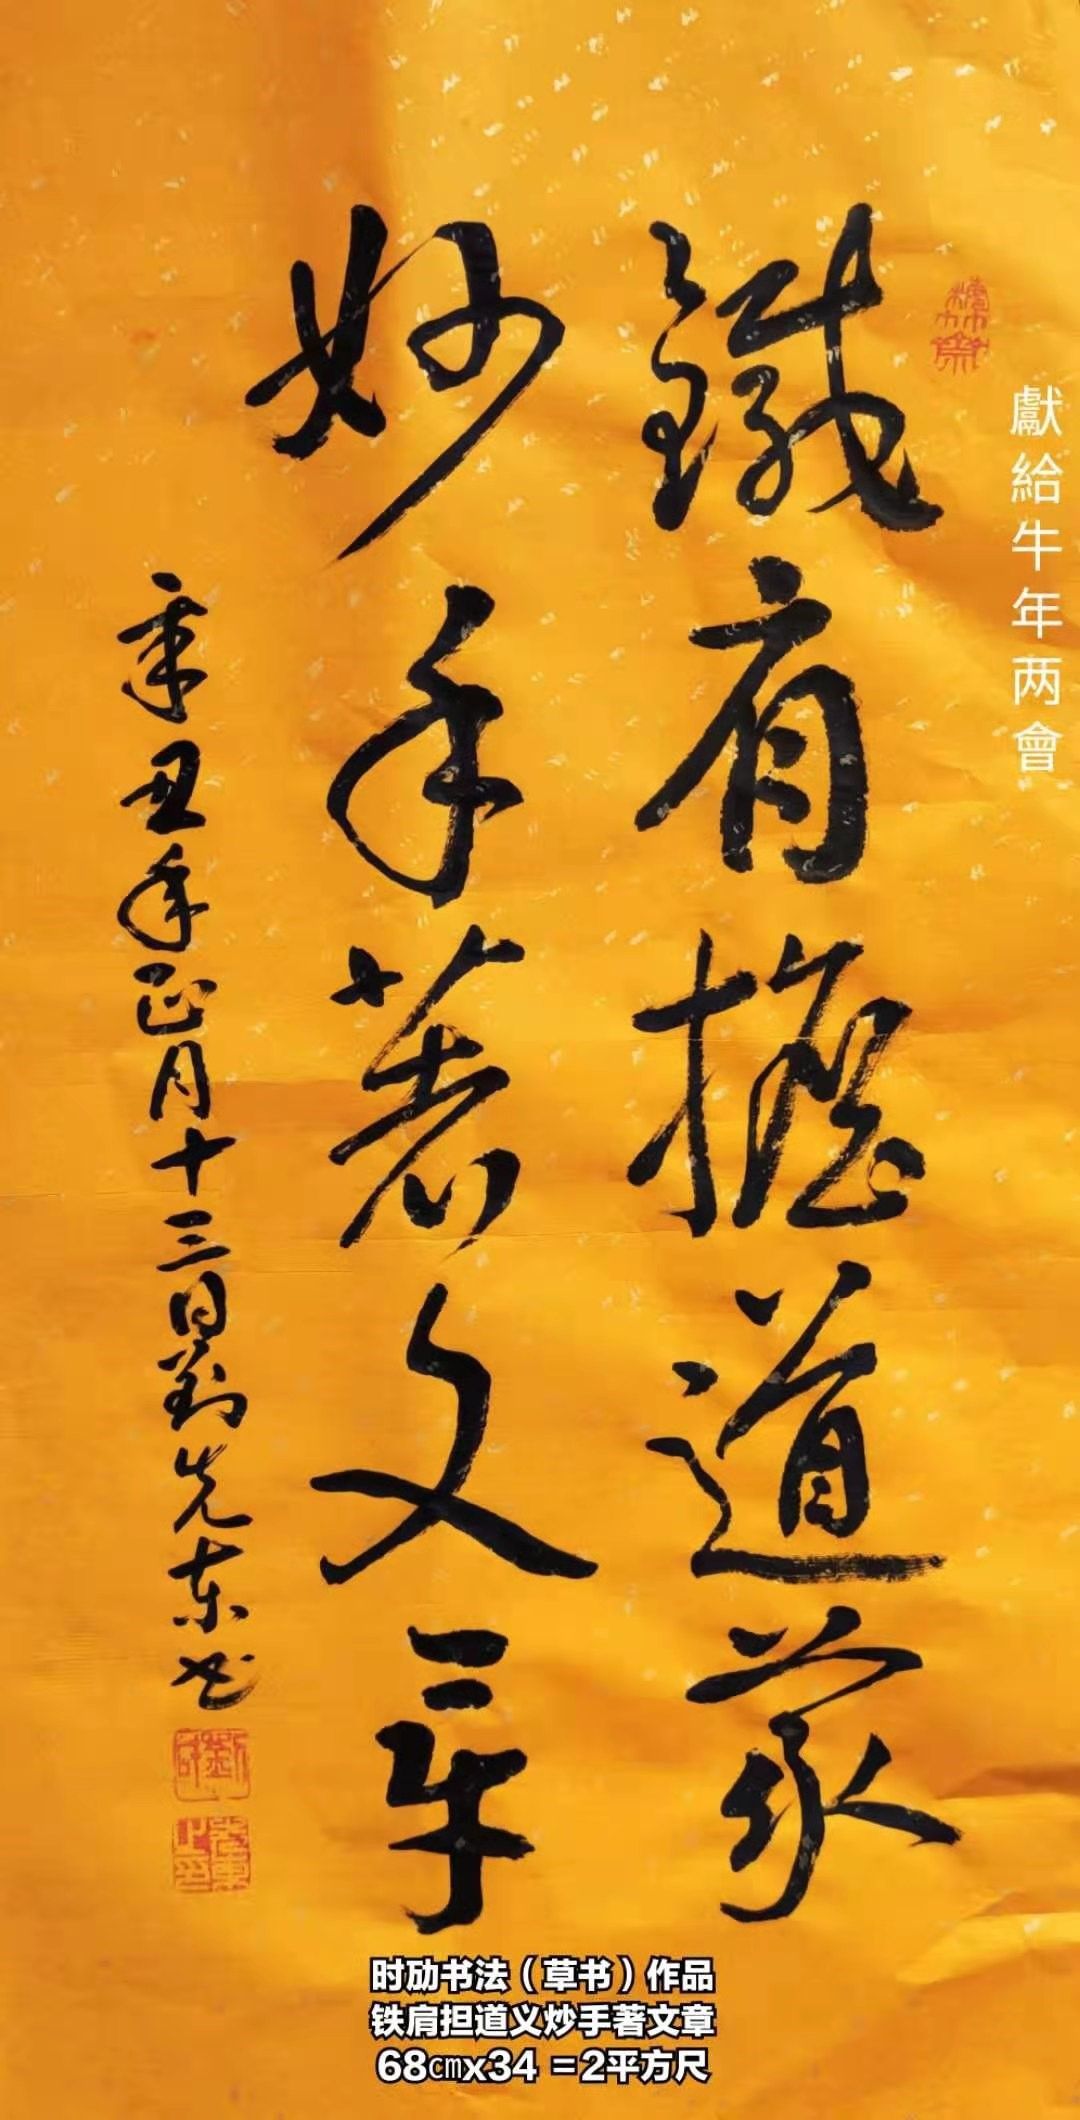 獻給牛年两會
鐵肩擔道義
妙手著文章
辛丑年正月十三日劉先東书
时劢书法（草书）作品
铁肩担道义炒手著文章
68㎝x34 =2平方尺